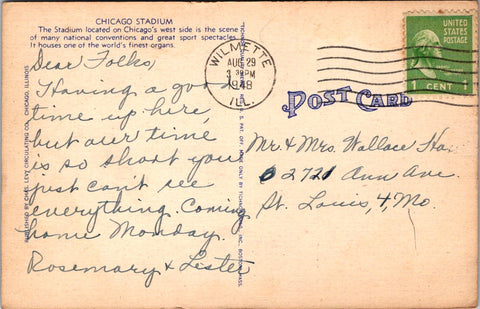 CHICAGO STADIUM
The Stadium located on Chicago's west side is the scene
of many national conventions and great sport spectacles.
It houses one of the world's finest organs.
Dear Folks,
Having a good
time up here,
but our time
is so short you
just can't see
everything. Coming
home Monday.
Rosemary & Lester
PUBLISHED BY CHAS. LEVY CIRCULATING CO., CHICAGO, ILLINOIS
WILMETTE
AUG 29
3 PM
1948
ILL.
UNITED
STATES
POSTAGE
1 CENT 1
POST CARD
Mr. & Mrs. Wallace
2721 Ann Ave.
St. Louis, 4, Mo.